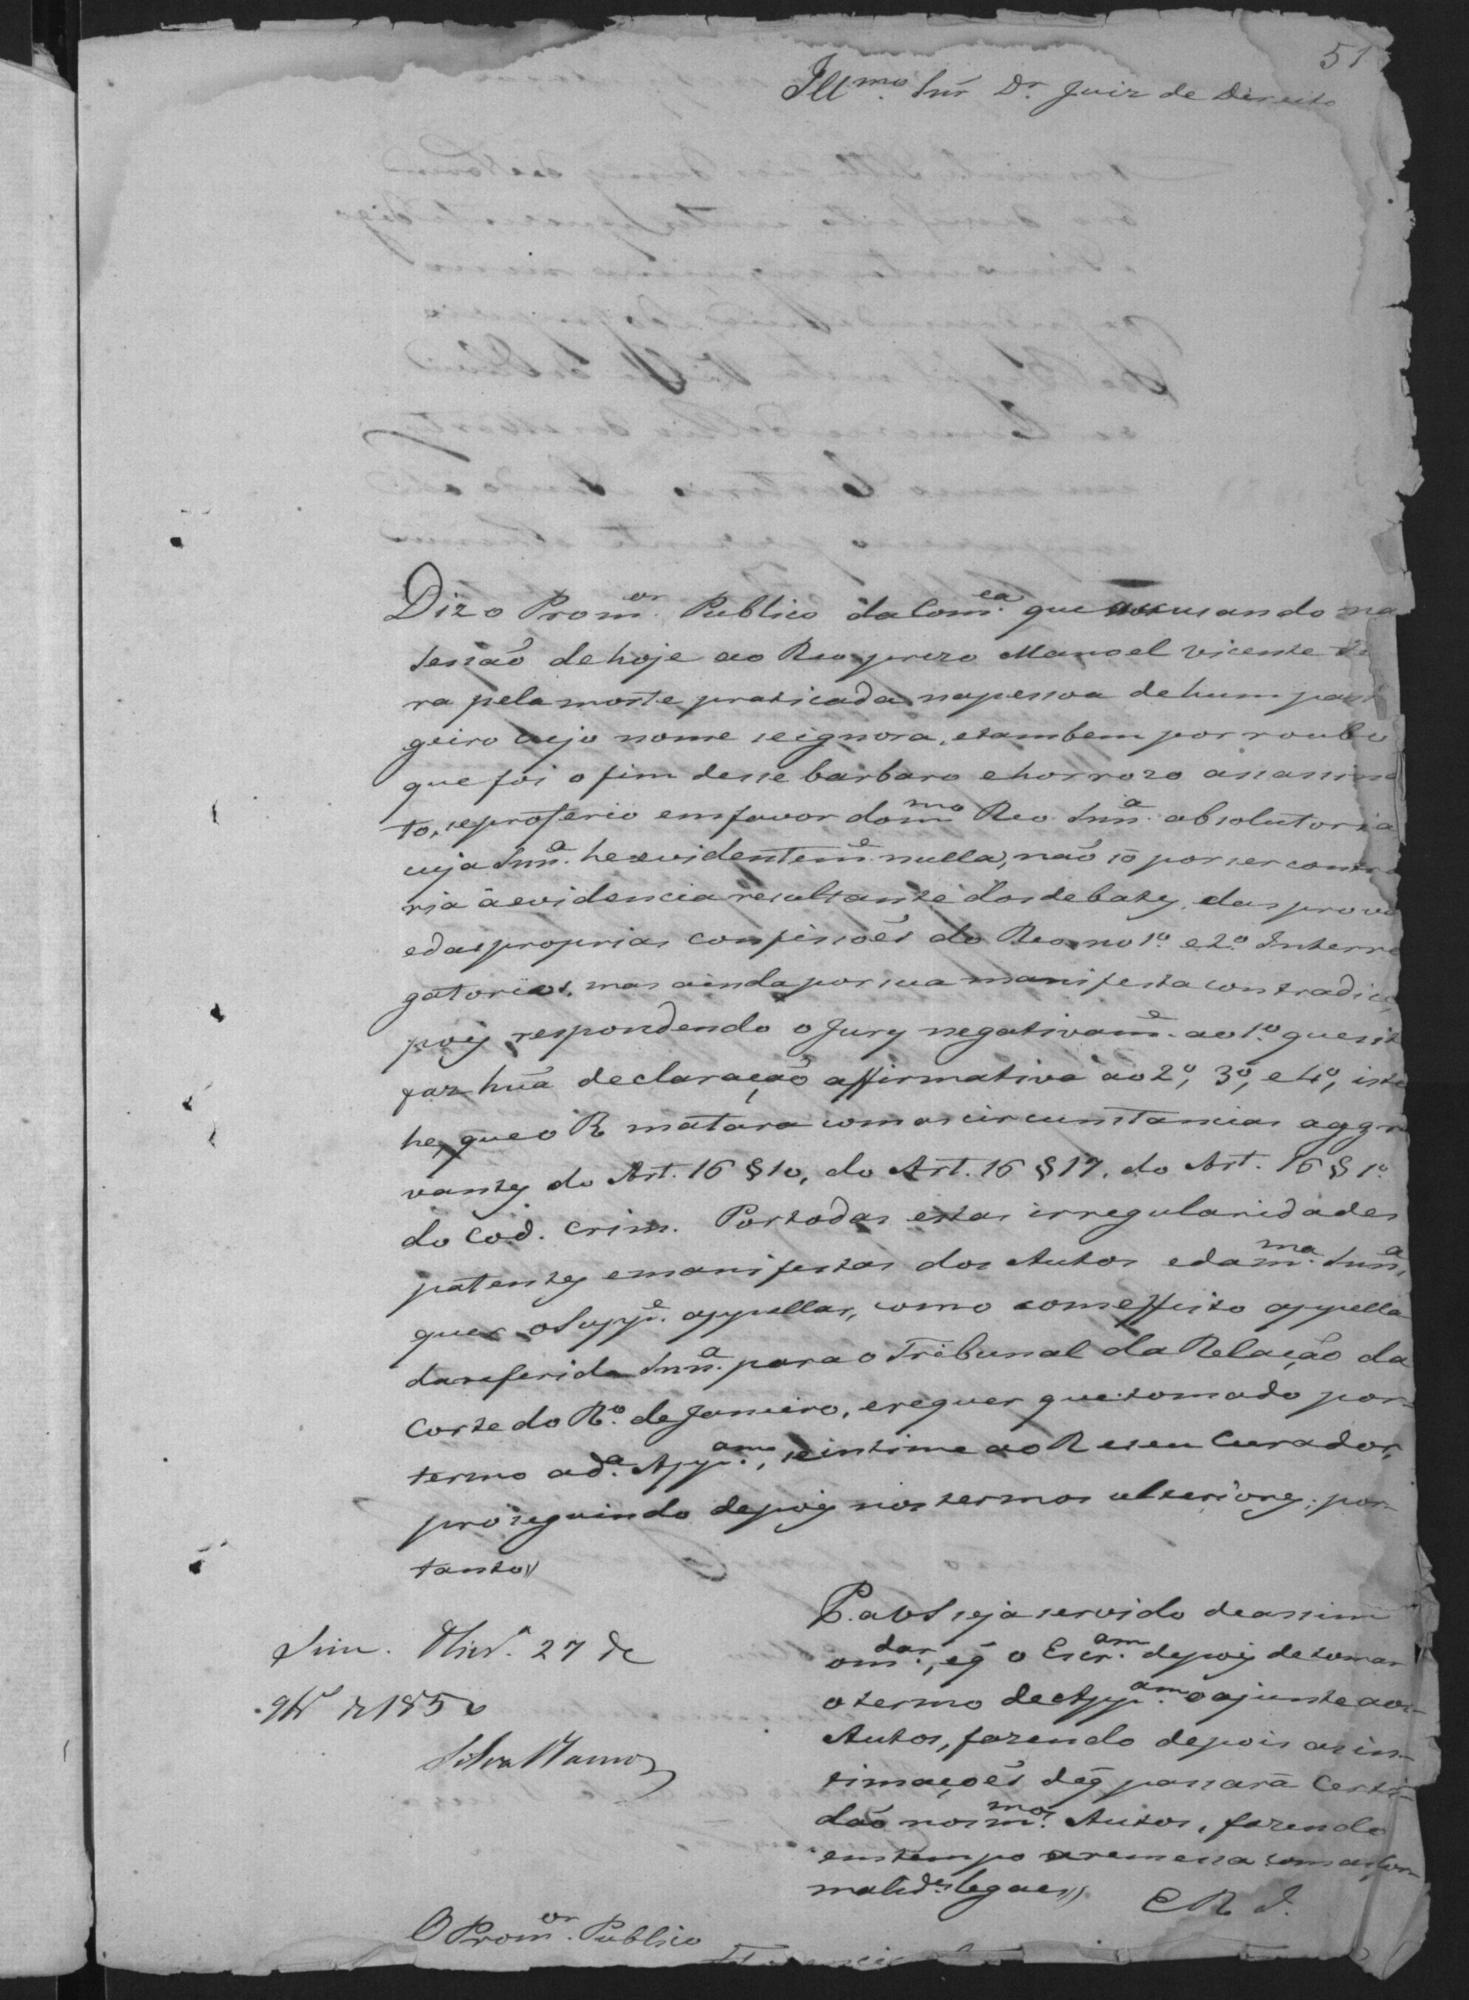 51
Illmo. Snr. Dr. Juiz de Direito
Diz o Promor. Publico da Comca. que accusando na
sessão de hoje ao Reo prezo Manoel Vicente
ra pela morte praticada na pessoa de hum pas
geiro cujo nome se ignora, e tambem por roubo
que foi o fim desse barbaro e horrozo assassina
to, se proferio em favor do mmo. Reo Snnª. absolutoria
cuja Snnª. he evidenteme. nulla, não só por ser contra
ria á evidencia resultante dos debates, das prova
e das proprias confissões do Reo no 1º. e 2º. Interro
gatorios, mas ainda por sua manifesta contradicç
pois respondendo o Jury negativame. ao 1º. quesit
faz hũa declaração affirmativa ao 2º, 3º, e 4º, isto
he, que o R matara com as circumstancias aggra
vantes do Art. 16 § 10, do Art. 16 § 17, do Art. 16 § 1º.
do Cod. Crim. Por todas estas irregularidades
patentes e manifestas dos Autos e da mma. Snnª,
quer o Suppe. appellar, como com effeito appella
da referida Snnª. para o Tribunal da Relação da
Corte do Rº. de Janeiro, e requer que tomado por
termo a dª. Appam., se intime ao R e seu Curador,
proseguindo depois nos termos ulteriores; por-
tanto//
P. a VS seja servido de assim
omdar., e q̃ o Escram. depois de tomar
o termo de Appam. o ajunte aos
Autos, fazendo depois as in-
timações de q̃ passará Certi-
dão nos mmos. Autos, fazendo
em tempo a remessa com as for-
malides. legaes//
E R J.
Sim. Olivª. 27 de
9bro de 1850
Silva Ramos
O Promor. Publico